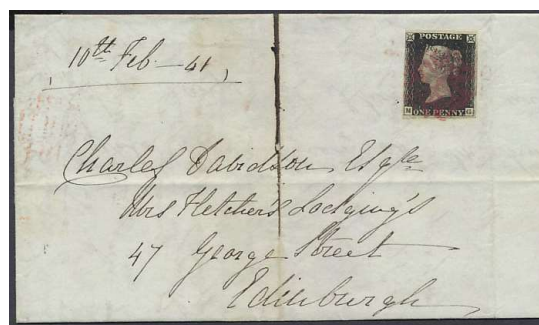 10th Feb - 41
POSTAGE
ONE PENNY
Charles Davidson Esqre
Mrs Fletcher's Lodging's
47 George Street
Edinburgh